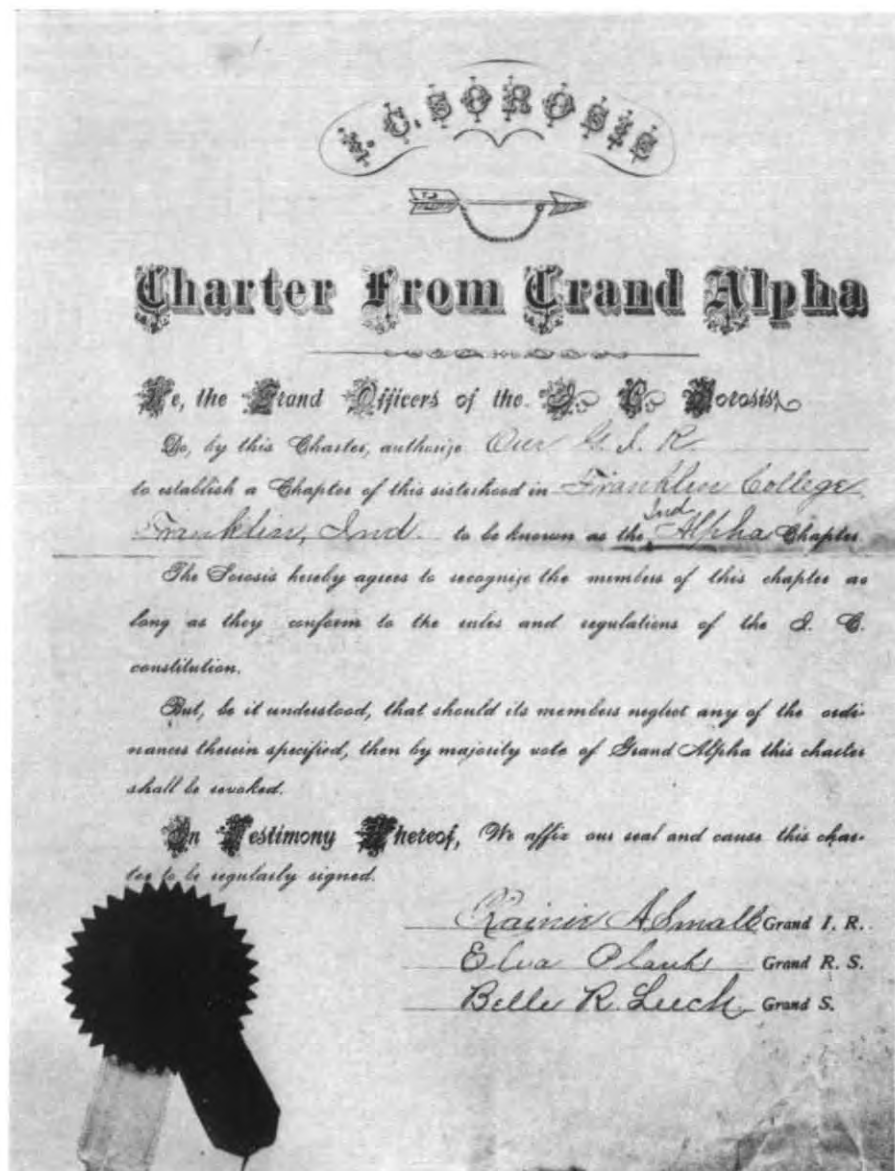 I. C. SOROSIS
Charter From Grand Alpha
We, the Grand Officers of the I. C. Sorosis,
Do, by this Charter, authorize Our G. I. R.
to establish a Chapter of this sisterhood in Franklin College,
Franklin, Ind. to be known as the Ind Alpha Chapter
The Sorosis hereby agrees to recognize the members of this chapter as
long as they conform to the rules and regulations of the I. C.
constitution.
But, be it understood, that should its members neglect any of the ordi-
nances therein specified, then by majority vote of Grand Alpha this charter
shall be revoked.
In Testimony Whereof, We affix our seal and cause this char-
ter to be regularly signed.
Rainie A Small Grand I. R.
Elva Plank Grand R. S.
Belle R. Leech Grand S.